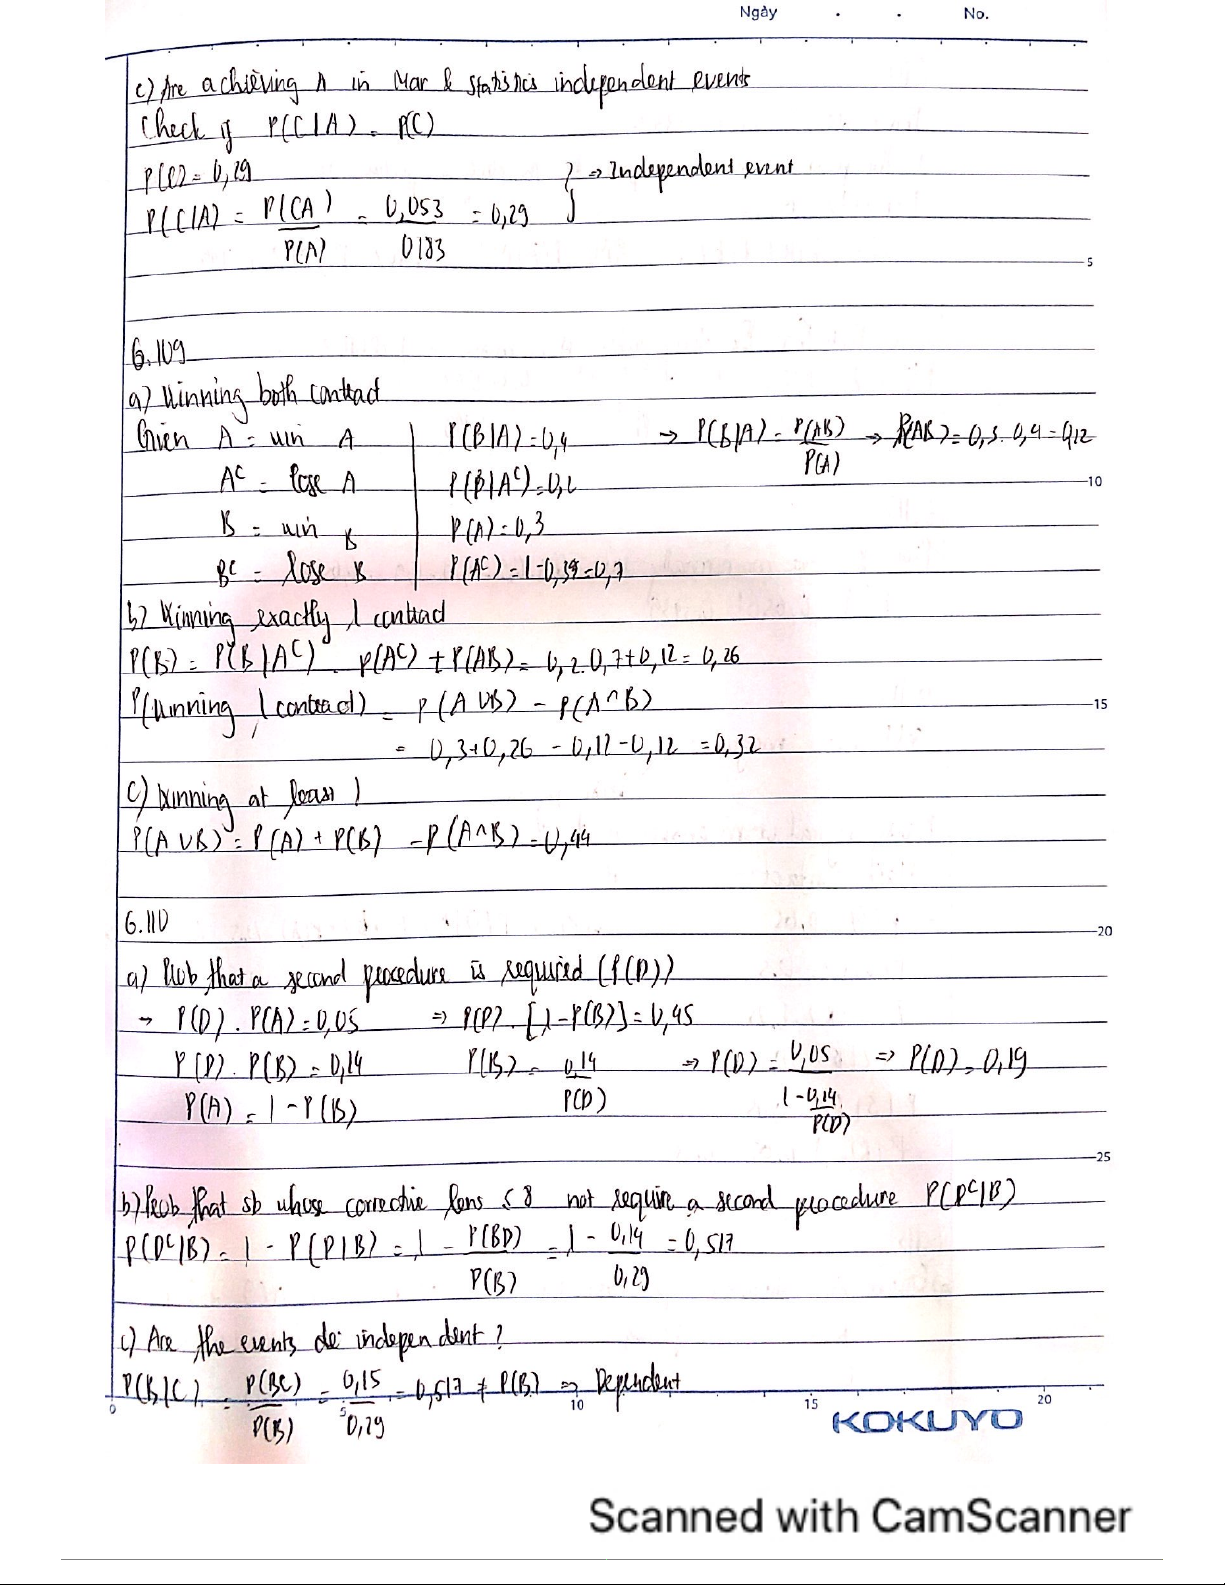 Ngày . . No.
c) Are achieving A in Mar & Statistics independent events
Check if P(C|A) = P(C)
P(C) = 0,29 } => Independent event
P(C|A) = P(CA) / P(A) = 0,053 / 0183 = 0,29
5
6.109
a) Winning both contract
Given A = win A | P(B|A) = 0,4 → P(B|A) = P(AB) / P(A) → P(AB) = 0,3 . 0,4 = 0,12
A^C = lose A | P(B|A^C) = 0,2
10
B = win B | P(A) = 0,3
B^C = lose B | P(A^C) = 1 - 0,3 = 0,7
b) Winning exactly 1 contract
P(B) = P(B|A^C) . P(A^C) + P(AB) = 0,2.0,7 + 0,12 = 0,26
P(winning 1 contract) = P(A ∪ B) - P(A ∩ B)
15
= 0,3 + 0,26 - 0,12 - 0,12 = 0,32
c) Winning at least 1
P(A ∪ B) = P(A) + P(B) - P(A ∩ B) = 0,44
6.110
20
a) Prob that a second procedure is required (P(D))
→ P(D) . P(A) = 0,05 => P(D) . [1 - P(B)] = 0,45
P(D) . P(B) = 0,14 P(B) = 0,14 / P(D) => P(D) = 0,05 / (1 - 0,14 / P(D)) => P(D) = 0,19
P(A) = 1 - P(B)
25
b) Prob that sb whose corrective lens ≤ 8 not require a second procedure P(D^C|B)
P(D^C|B) = 1 - P(D|B) = 1 - P(BD) / P(B) = 1 - 0,14 / 0,29 = 0,517
c) Are the events independent?
P(B|C) = P(BC) / P(B) = 0,15 / 0,29 = 0,517 ≠ P(B) => Dependent
0 5 10 15 20
KOKUYO
Scanned with CamScanner